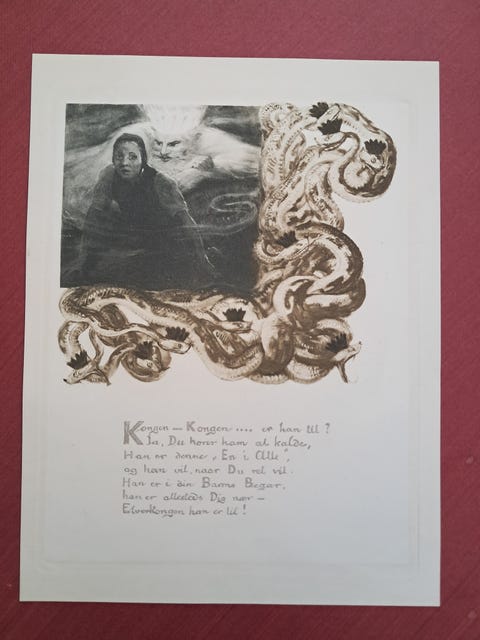 Kongen — Kongen .... er han til?
Ja, Du hører ham at kalde,
Han er denne „En i Alle",
og han vil, naar Du ret vil.
Han er i din Barms Begær,
han er allesteds Dig nær —
Elverkongen han er til!